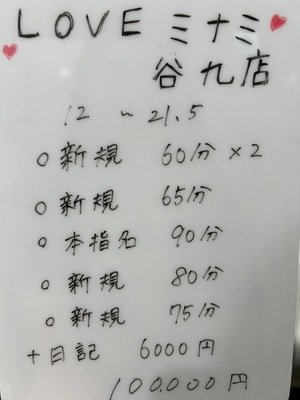 LOVE ミナミ
谷九店
12 ~ 21.5
○ 新規 60分 ×2
○ 新規 65分
○ 本指名 90分
○ 新規 80分
○ 新規 75分
+日記 6000円
100.000円